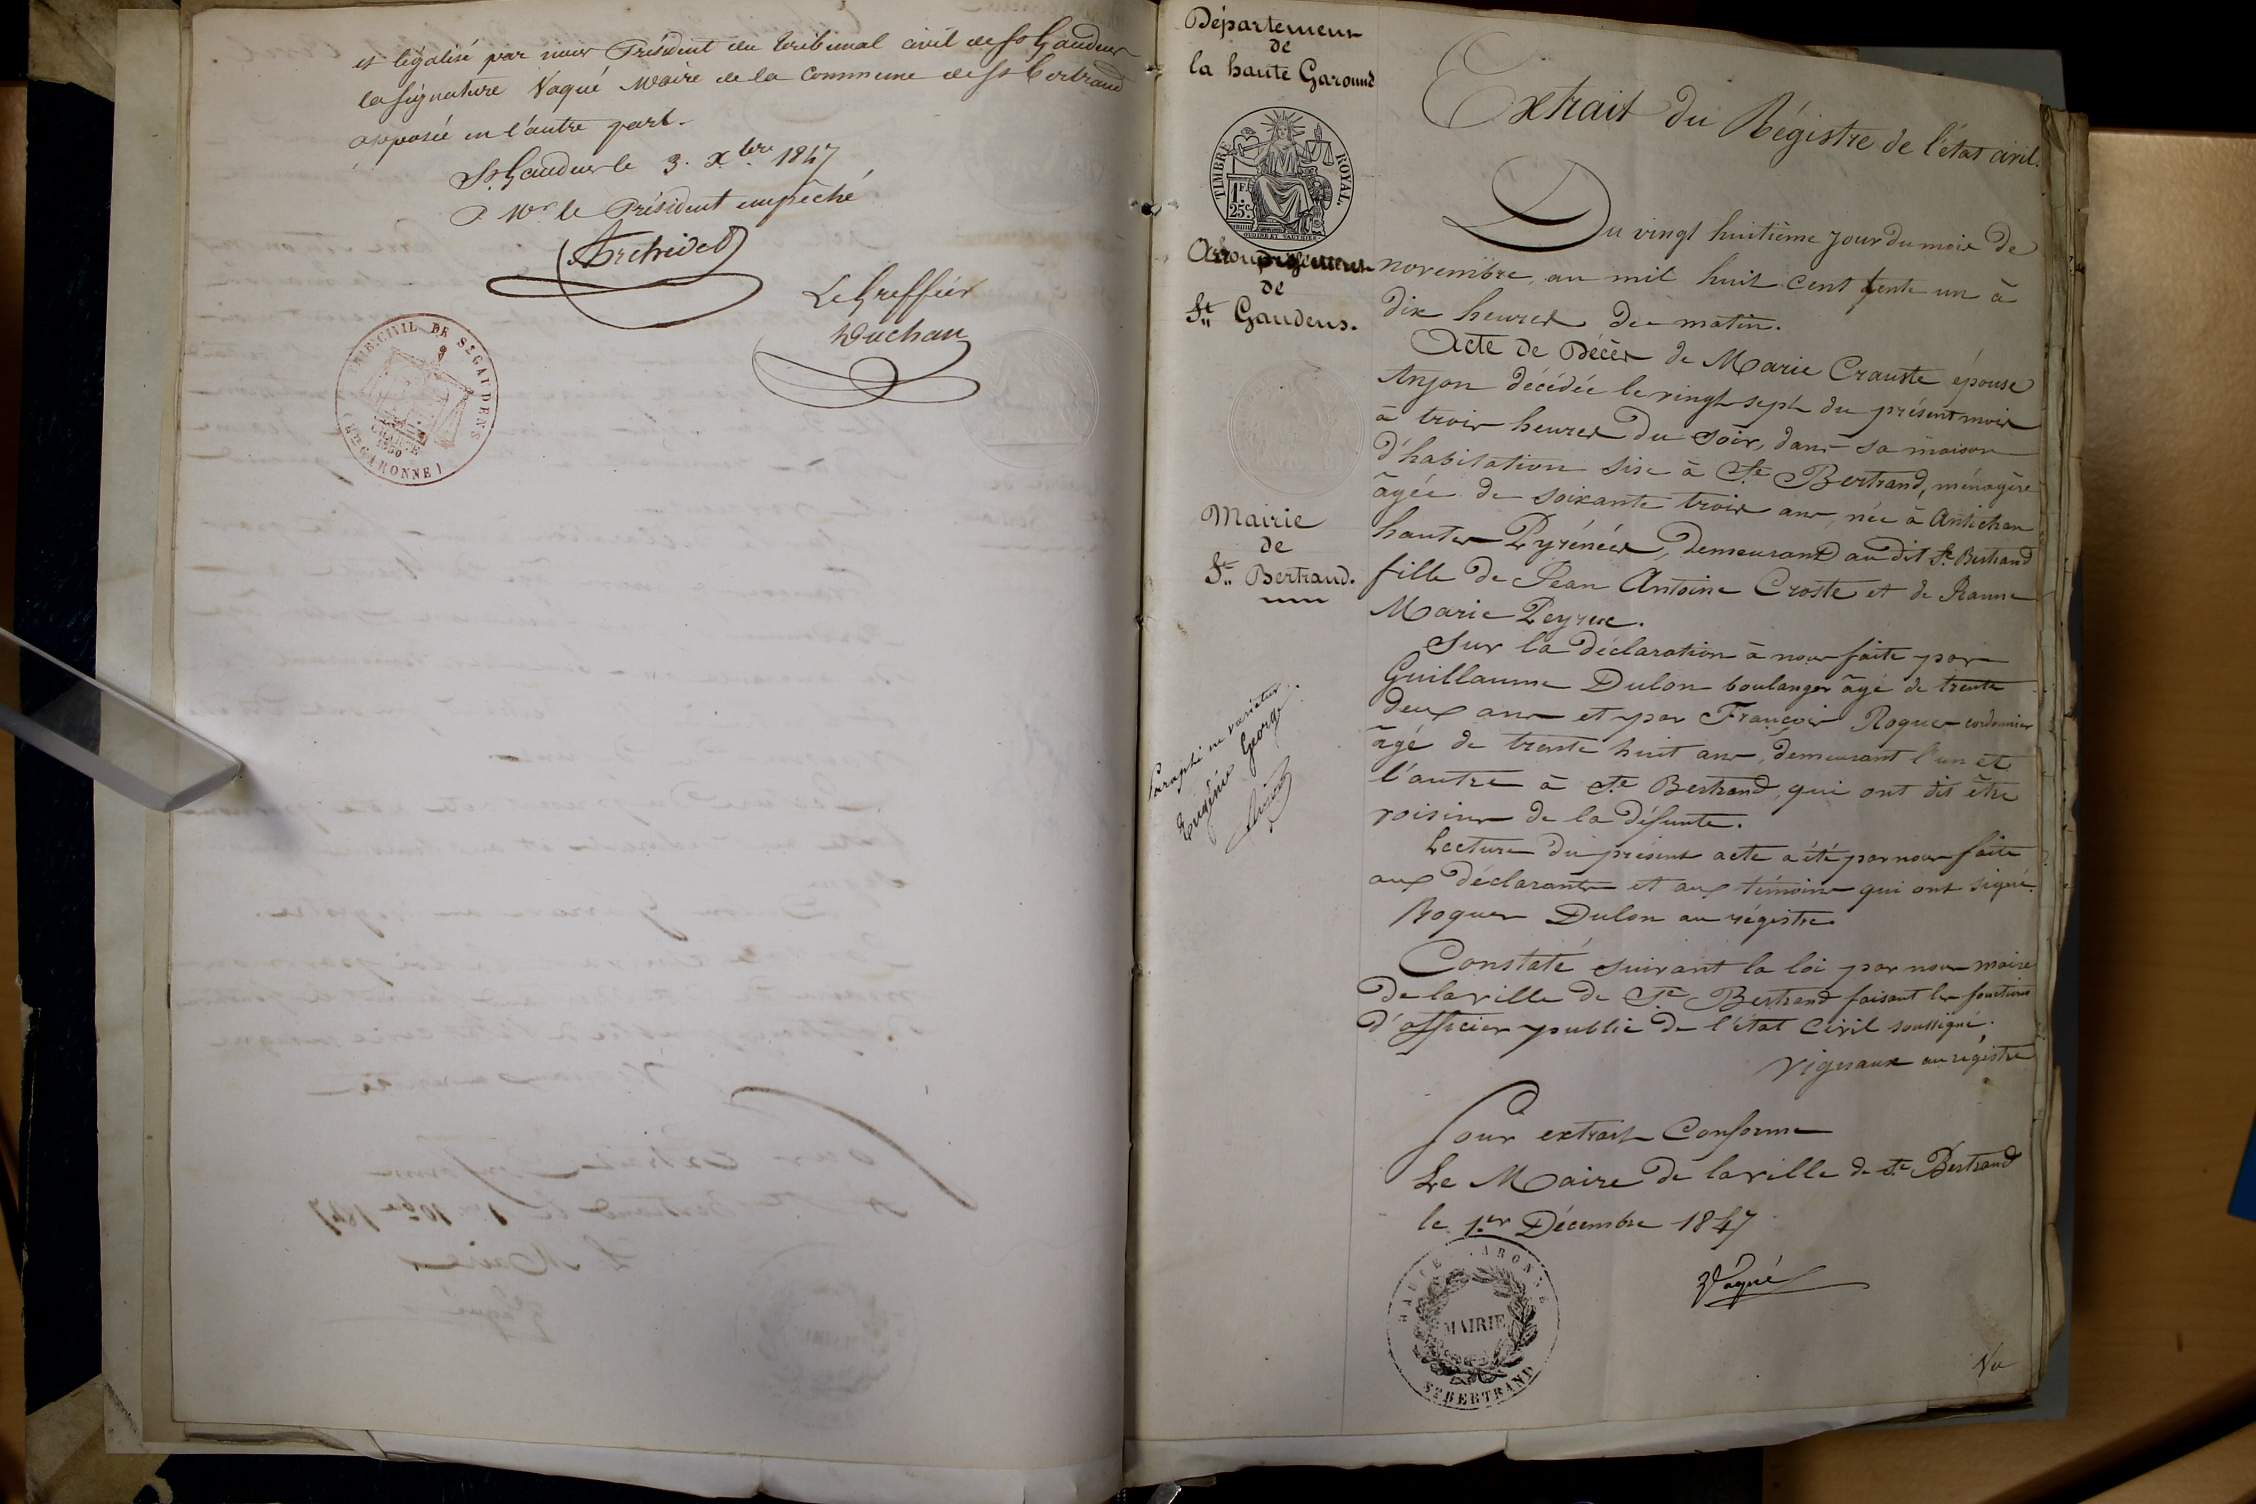 et légalisé par nous Président du tribunal civil de St Gaudens
la signature Vaqué Maire de la Commune de St Bertrand
apposée en l'autre part.
St Gaudens le 3. Xbre 1847
P. Mr le Président empêché
Le Greffier
TRIB. CIVIL DE St GAUDENS
CHARTE
1830
(Hte GARONNE)
Département
de
la haute Garonne
TIMBRE ROYAL
1 F.
25 c.
Arrondissement
de
St Gaudens.
Mairie
de
St Bertrand.
Paraphé ne varietur
Eugène George
Extrait du Régistre de l'état civil.
Du vingt huitième jour du mois de
novembre, an mil huit cent trente un à
dix heures du matin.
Acte de Décès de Marie Crauste épouse
Anjon décédée le vingt sept du présent mois
à trois heures du soir, dans sa maison
d'habitation sise à St Bertrand, ménagère
âgée de soixante trois ans, née à Antichan
hautes Pyrénées, demeurant au dit St Bertrand
fille de Jean Antoine Croste et de Jeanne
Marie Peyrue.
Sur la déclaration à nous faite par
Guillaume Dulon boulanger âgé de trente
deux ans et par François Roques cordonnier
âgé de trente huit ans, demeurant l'un et
l'autre à St Bertrand, qui ont dit être
voisins de la défunte.
Lecture du présent acte a été par nous faite
aux déclarants et aux témoins qui ont signé.
Roques Dulon au régistre.
Constaté suivant la loi par nous maire
de la ville de St Bertrand faisant les fonctions
d'officier public de l'état civil soussigné.
Vignaux au régistre
Pour extrait Conforme
Le Maire de la ville de St Bertrand
le 1.er Décembre 1847
Vaqué
HAUTE GARONNE
MAIRIE
St BERTRAND
Vu